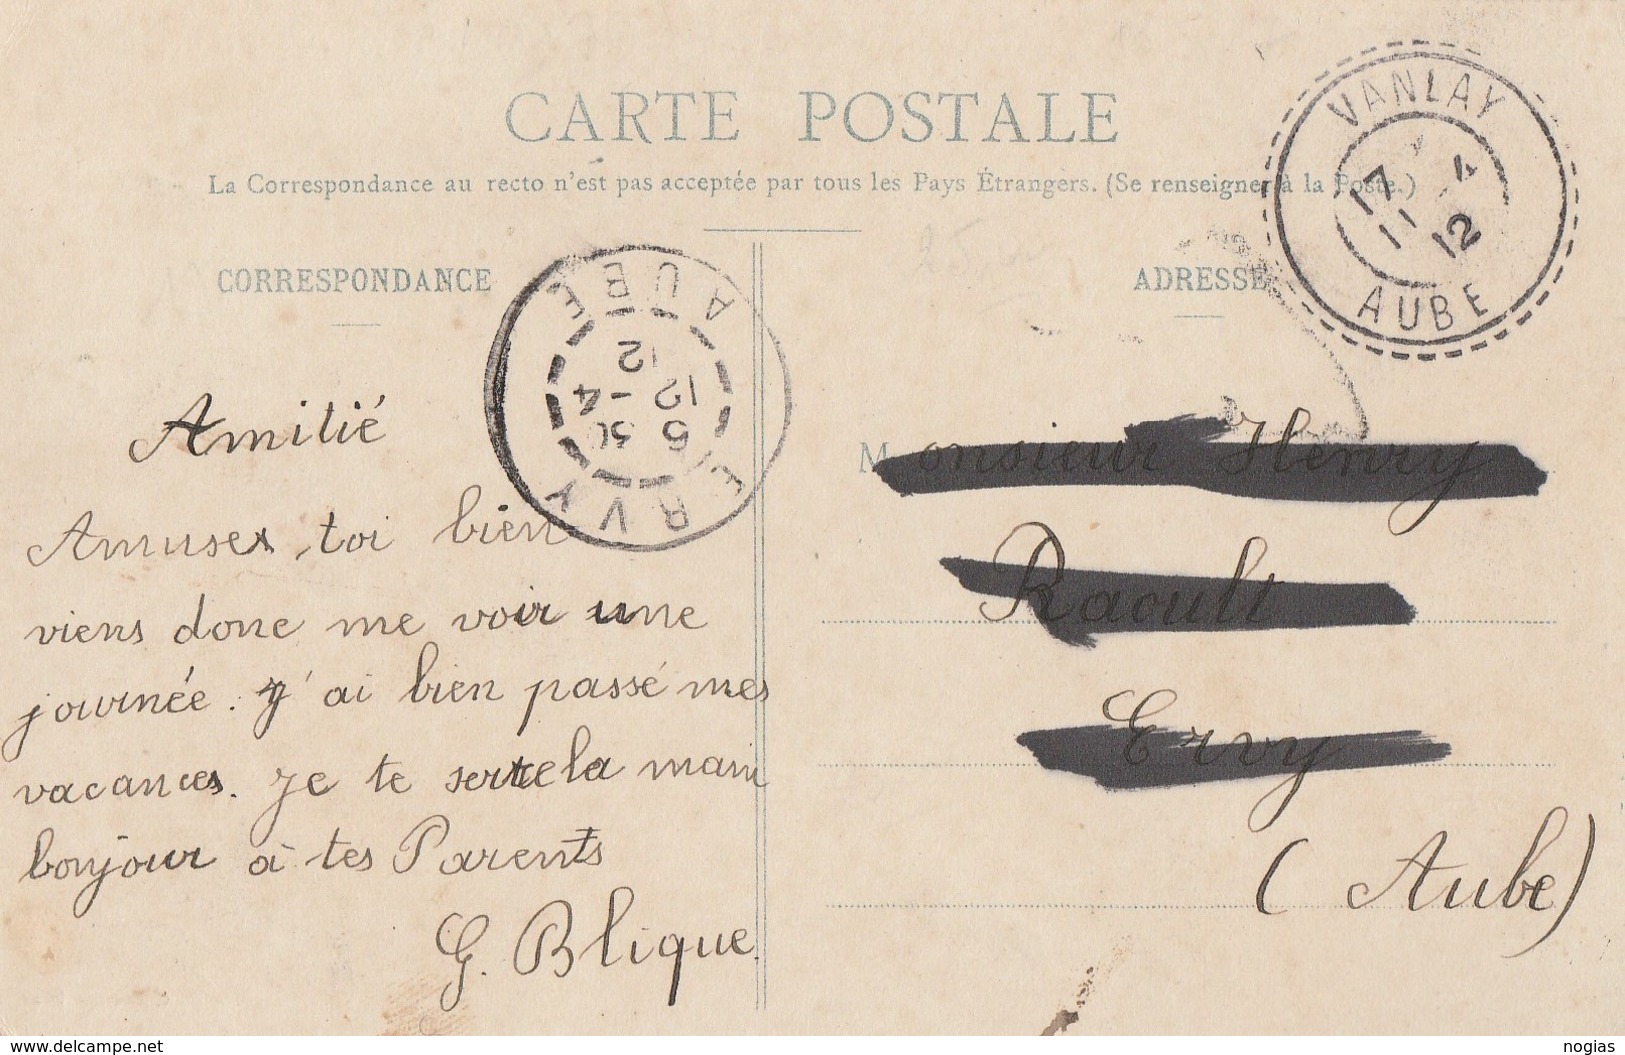 CARTE POSTALE
La Correspondance au recto n'est pas acceptée par tous les Pays Étrangers. (Se renseigner à la Poste.)
CORRESPONDANCE
ADRESSE
VANLAY
17 4
11 12
AUBE
ERVY
6 30
12 -4
12
AUBE
Amitié
Amuses toi bien
viens donc me voir une
journée. J'ai bien passé mes
vacances. Je te serre la main
bonjour à tes Parents
G. Blique.
Monsieur Henry
Raoult
Ervy
(Aube)
www.delcampe.net
nogias